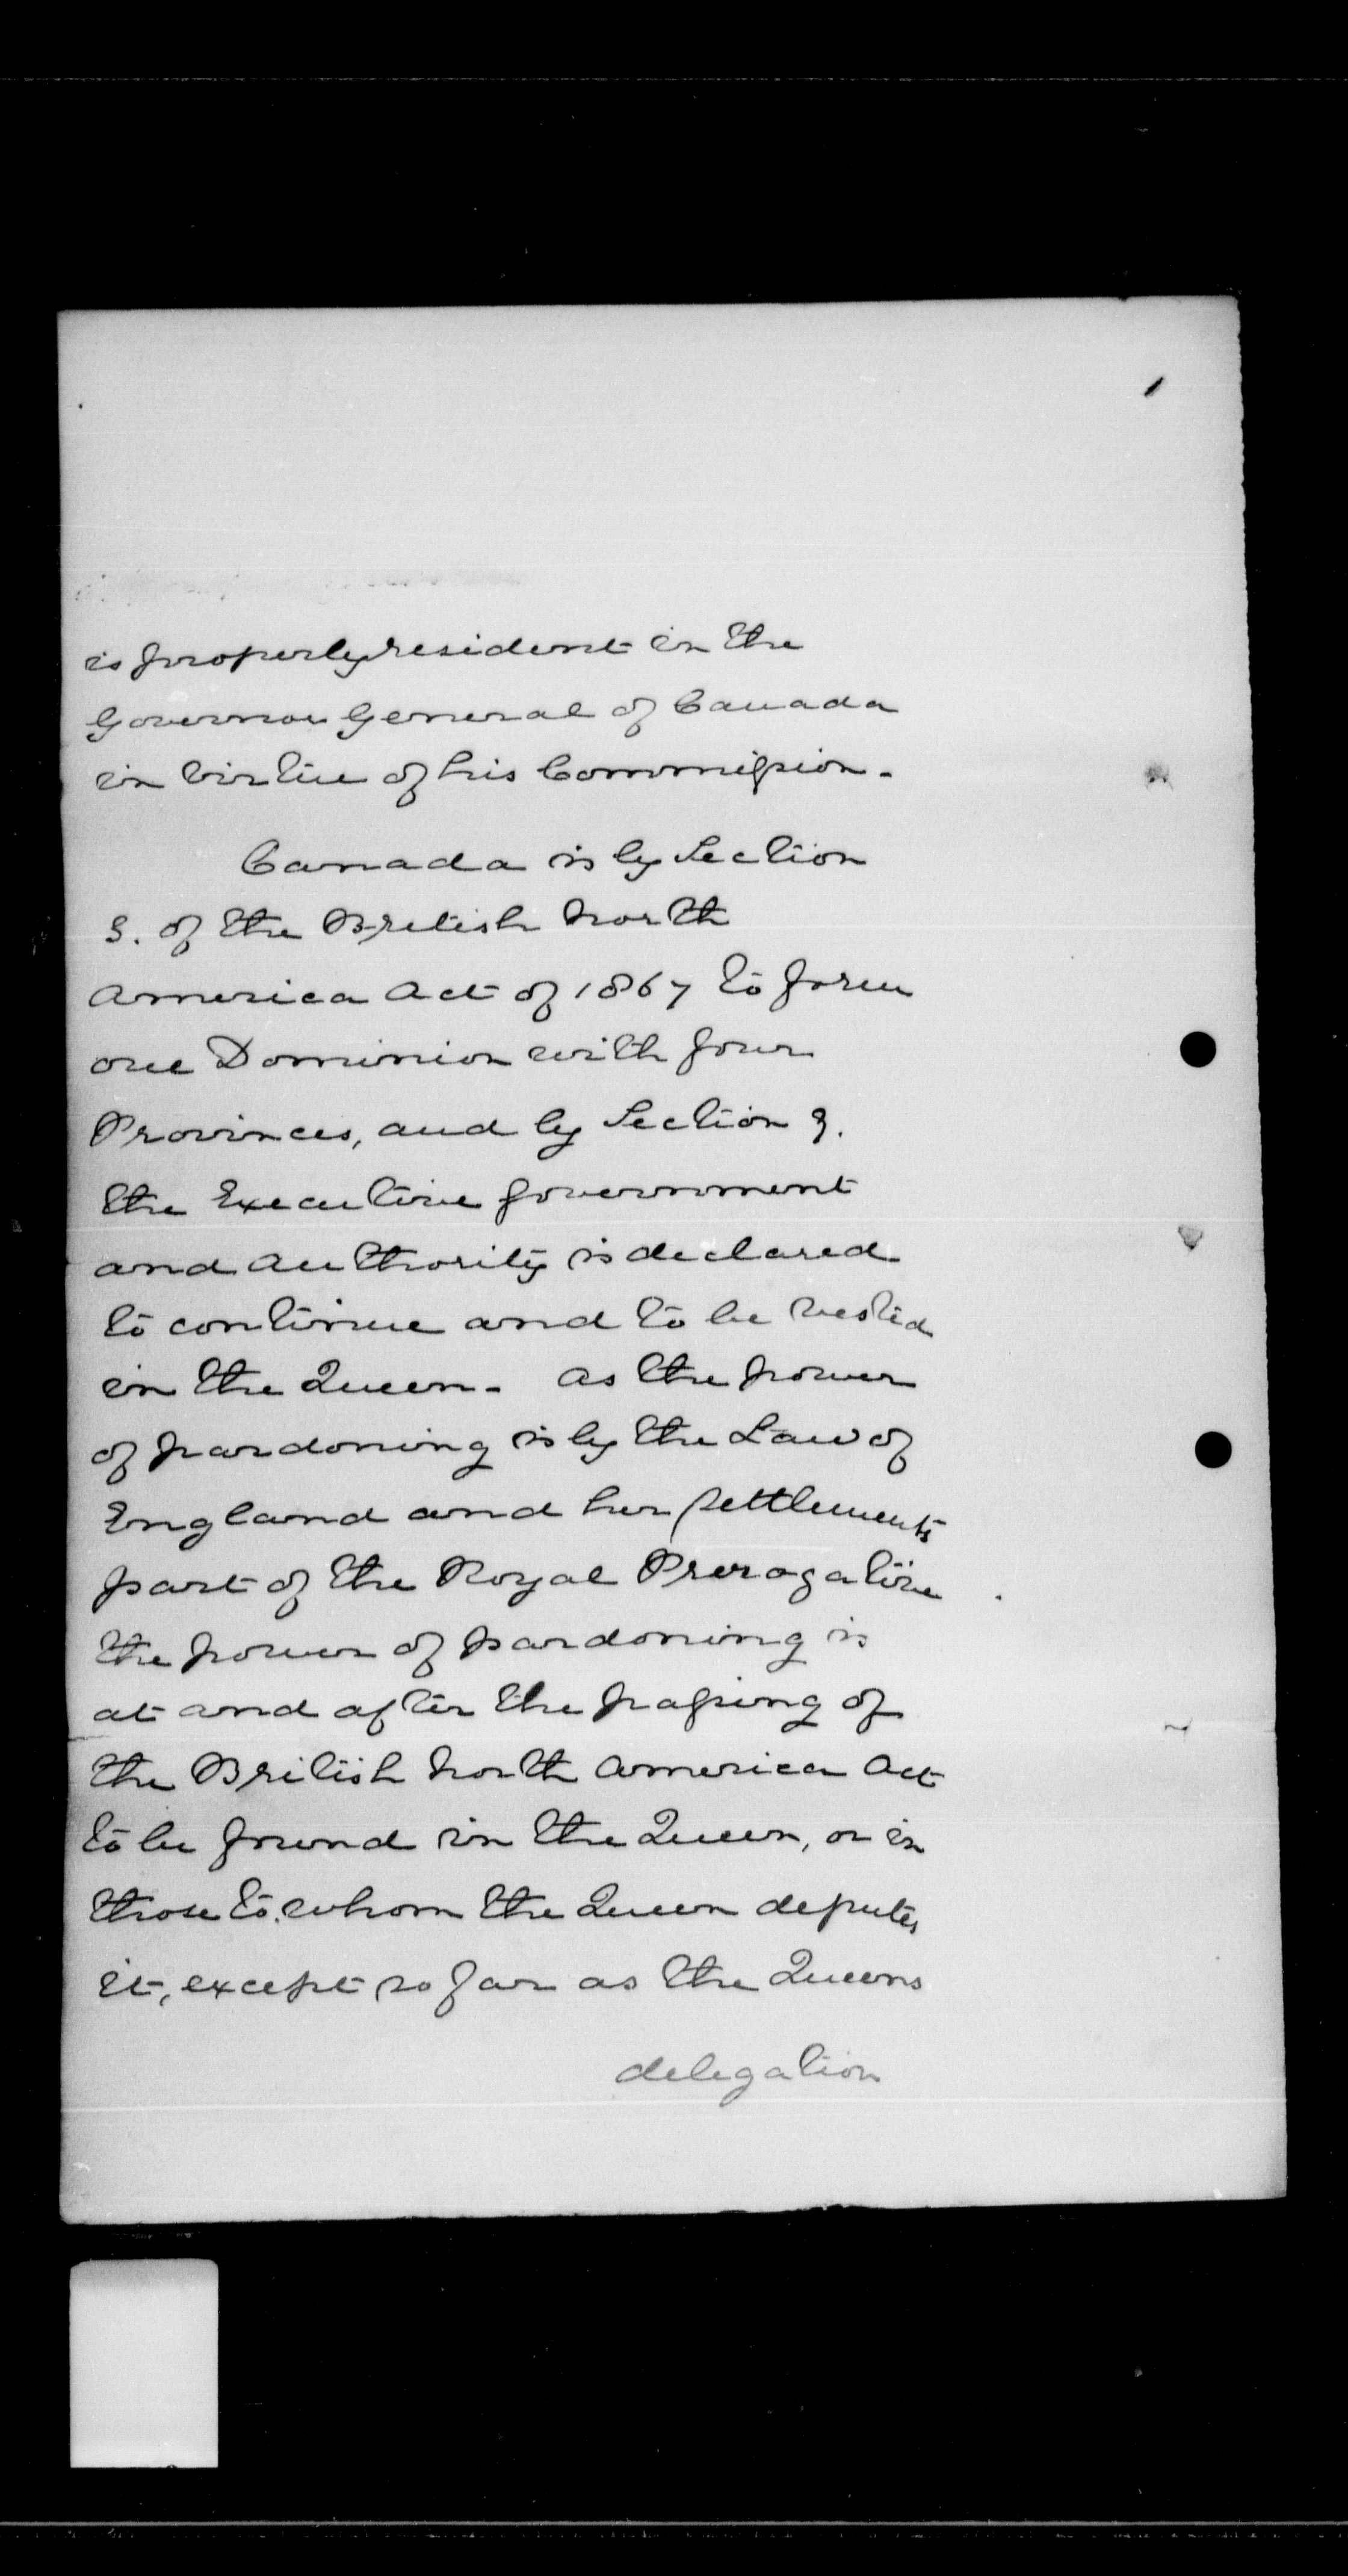 is properly resident in the
Governor General of Canada
in virtue of his Commission.
Canada is by Section
3. of the British North
America Act of 1867 to form
one Dominion with four
Provinces, and by Section 9.
the Executive Government
and authority is declared
to continue and to be vested
in the Queen. As the power
of pardoning is by the Law of
England and her settlements
part of the Royal Prerogative
the power of pardoning is
at and after the passing of
the British North America Act
to be found in the Queen, or in
those to whom the Queen deputes
it, except so far as the Queens
delegation